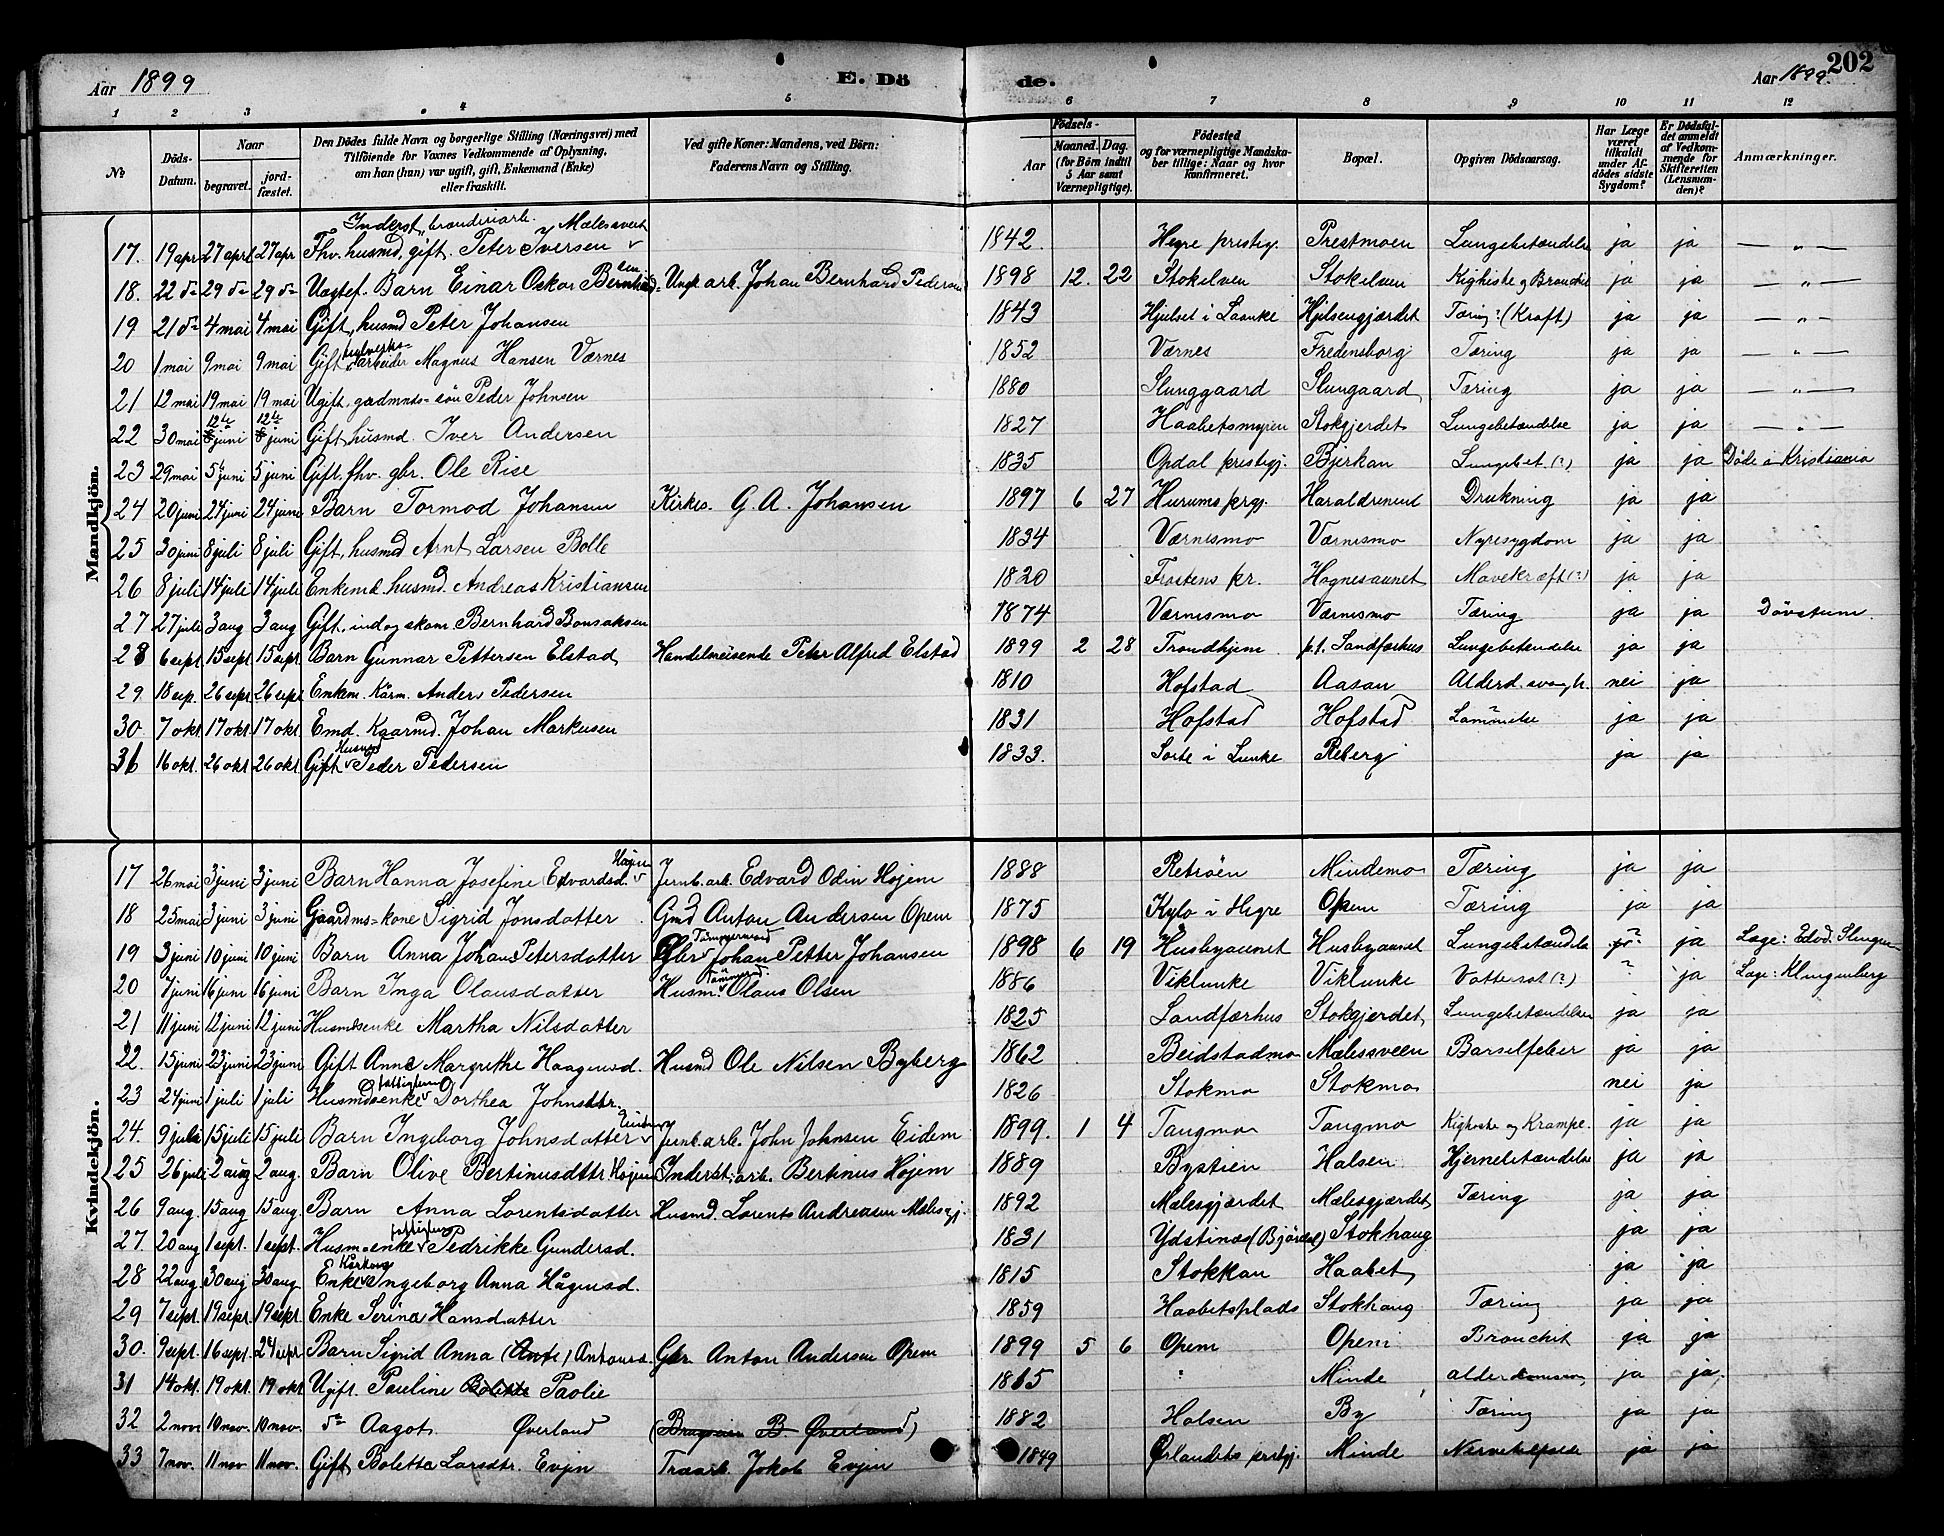 Aar 1899 E. Dö de. Aar 1899. 202
1 2 3 4 5 6 7 8 9 10 11 12
№ Döds-Datum. Naar begravet. jordfæstet. Den Dödes fulde Navn og borgerlige Stilling (Næringsvei) med Tilföiende for Voxnes Vedkommende af Oplysning, om han (hun) var ugift, gift, Enkemand (Enke) eller fraskilt. Ved gifte Koner: Mandens, ved Börn: Faderens Navn og Stilling. Födsels- Aar Maaned. Dag. (for Börn indtil 5 Aar samt Værnepligtige). Födested og for værnepligtige Mandskaber tillige: Naar og hvor konfirmeret. Bopæl. Opgiven Dödsaarsag. Har Læge været tilkaldt under Afdödes sidste Sygdom? Er Dödsfaldet anmeldt af Vedkommende for Skifteretten (Lensmanden)? Anmærkninger.
Mandkjön.
Inderst, brænderiarb. Mælesaveet
17. 19 apr 27 april 27 apr Fhv. husmd, gift. Peter Iversen 1842. Hegre prestgj. Prestmoen Lungebetændelse ja ja — „ —
18. 22 do 29 do 29 do Uægtef. Barn Einar Oskar Bernhardsen Ungk arb. Johan Bernhard Pedersen 1898 12. 22 Stokelven Stokelven Kighoste og Bronchit ja ja — „ —
19 21 do 4 mai 4 mai Gift, husmd Peter Johansen 1843 Hjelset i Laanke Hjelsengjærdet Tæring? (Kræft) ja ja — „ —
20 1 mai 9 mai 9 mai Gift teglverks-arbeider Magnus Hansen Værnes 1852 Værnes Fredensborg Tæring ja ja — „ —
21 12 mai 19 mai 19 mai Ugift, gaardmnds-sön Peder Johnsen 1880 Slunggaard Slungaard Tæring ja ja — „ —
22 30 mai 12te 8 juni 12te 8 juni Gift husmd. Iver Andersen 1827 Haabetsmyren Stokgjerdet Lungebetændelse ja ja — „ —
23 29 mai 5 juni 5 juni Gift, fhv. gbr. Ole Rise 1835 Opdal prestgj. Bjerkan Lungebet (?) ja ja Döde i Kristiania
24 20 juni 24 juni 24 juni Barn Tormod Johansen Kirkes. G. A. Johansen 1897 6 27 Hurums prgj. Haraldreinen Drukning ja ja
25 30 juni 8 juli 8 juli Gift, husmd Arnt Larsen Bolle 1834 Værnesmo Værnesmo Nyresygdom ja ja
26 8 juli 14 juli 14 juli Enkemd. husmd. Andreas Kristiansen 1820 Frostens pr. Hognesaunet Mavekræft (?) ja ja
27 27 juli 3 aug 3 aug Gift, ind og skom. Bernhard Bonsaksen 1874 Værnesmo Værnesmo Tæring ja ja Dövstum.
28 6 sept 15 sept 15 sept Barn Gunnar Pettersen Elstad Handelsreisende Peter Alfred Elstad 1899 2 28 Trondhjem p.t. Sandfærhus Lungebetændelse ja ja
29 18 sep. 26 sept 26 sept Enkem. Kårm. Anders Pedersen 1810 Hofstad Aasan Alderd. svagh. nei ja
30 7 okt 17 okt 17 okt Emd. Kaarmd. Johan Markusen 1831 Hofstad Hofstad Lammelse ja ja
31 16 okt. 26 okt 26 okt. Gift Husmd Peder Pedersen 1833. Sorte i Lunke Reberg ja ja
Kvindekjön.
17 26 mai 3 juni 3 juni Barn Hanna Josefine Edvardsd. Højem Jernb. arb. Edvard Odin Højem 1888 Retröen Mindemo Tæring ja ja
18 25 mai 3 juni 3 juni Gaardms-kone Sigrid Jonsdatter Gmd Anton Andersen Opem 1875 Kylo i Hegre Opem Tæring ja ja
19 3 juni 10 juni 10 juni Barn Anna Johan Petersdatter Gbr Tømmermand Johan Petter Johansen 1898 6 19 Husbyaunet Husbyaunet Lungebetændelse ja? ja Læge:
20 7 juni 16 juni 16 juni Barn Inga Olausdatter Husm. Tömmermd Olaus Olsen 1886 Viklunke Viklunke Vattersot (?) ? ja Læge: Klingenberg
21 11 juni 12 juni 12 juni Husmdsenke Martha Nilsdatter 1825 Sandfærhus Stokgjerdet Lungebetændelse ja ja
22. 15 juni 23 juni 23 juni Gift Anne Margrethe Haagensd. Husmd Ole Nilsen Byberg 1862 Beidstadmo Mælessveen Barselfeber ja ja
23 24 juni 1 juli 1 juli Husmdsenke fattiglem Dorthea Johnsdtr. 1826 Stokmo Stokmo nei ja
24. 9 juli 15 juli 15 juli Barn Ingeborg Johnsdatter Eidem Jernb. arb. John Johnsen Eidem 1899. 1 4 Tangmo Tangmo Kighoste og Krampe. ja ja
25 26 juli 2 aug 2 aug. Barn Olive Bertinusdttr Højem Inderst, arb. Bertinus Højem 1889 Bystien Halsen Hjernebetændelse ja ja
26 9 aug. 15 aug 15 aug. Barn Anna Lorentsdatter Husmd. Lorents Andreasen Mælesgj. 1892 Mælesgjærdet Mælesgjærdet Tæring ja ja
27. 20 aug 1 sept. 1 sept. Husmdenke fattiglem Pedrikke Gundersd. 1831 Ydstines (Björdal) Stokhaug ja ja
28 22 aug 30 aug 30 aug Enke Kårkone Ingeborg Anna Hågensd. 1815 Stokkan Haabet ja ja
29 7 sept. 19 sept. 19 sept. Enke Serina Hansdatter 1859 Haabetsplads Stokhaug Tæring ja ja
30. 9 sept. 16 sept. 24 sept Barn Sigrid Anna (Ante) Antonsd. Gbr. Anton Andersen Opem 1899 5 6 Opem Opem Bronchit ja ja
31 14 okt. 19 okt. 19 okt Ugift Pauline Bolette Paolie 1815 " Minde alderdomssv. ja ja.
32 2 nov 10 nov. 10 nov. do Aagot Øverland (Brugseier B Øverland) 1882 Halsen By Tæring ja ja
33 7 nov. 11 nov 11 nov. Gift Boletta Larsdtr. Evjen Træarb. Jakob Evjen 1849 Ørlandets prestgj. Minde Nervefeber ja ja